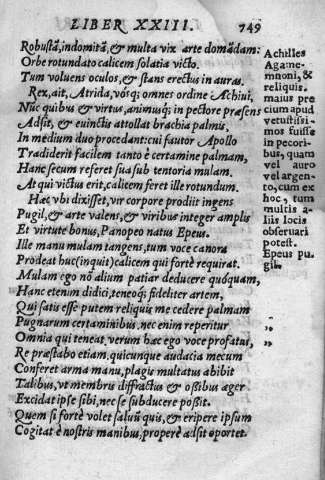 LIBER XXIII. 749
Robustã, indomitã, & multa vix arte domãdam:
Orbe rotundato calicem solatia victo.
Tum voluens oculos, & stans erectus in auras.
Rex, ait, Atrida, vósq; omnes ordine Achiui,
Nûc quibus & virtus, animusq; in pectore præsens
Adsit, & euinctis attollat brachia palmis,
In medium duo procedant: cui fautor Apollo
Tradiderit facilem tanto è certamine palmam,
Hanc secum referet sua sub tentoria mulam.
At qui victus erit, calicem feret ille rotundum.
Hæc vbi dixisset, vir corpore prodiit ingens
Pugil, & arte valens, & viribus integer amplis
Et virtute bonus, Panopeo natus Epeus.
Ille manu mulam tangens, tum voce canora
Prodeat huc (inquit) calicem qui fortè requirat.
Mulam ego nō alium patiar deducere quóquam,
Hanc etenim didici, teneoq; fideliter artem,
Qui satis esse putem reliquis me cedere palmam
Pugnarum certaminibus, nec enim reperitur
Omnia qui teneat, verum hac ego voce profatus,
Re præstabo etiam, quicunque audacia mecum
Conferet arma manu, plagis multatus abibit
Talibus, vt membris diffractus & oßibus æger
Excidat ipse sibi, nec se subducere poßit.
Quem si fortè volet saluũ quis, & eripere ipsum
Cogitat è nostris manibus, properè adsit oportet.
Achilles
Agame-
mnoni, &
reliquis.
maius pre
cium apud
vetustissi-
mos fuisse
in pecori-
bus, quam
vel auro
vel argen-
to, cum ex
hoc, tum
multis a-
liis locis
obseruari
potest.
Epeus pu-
gil.
„
„